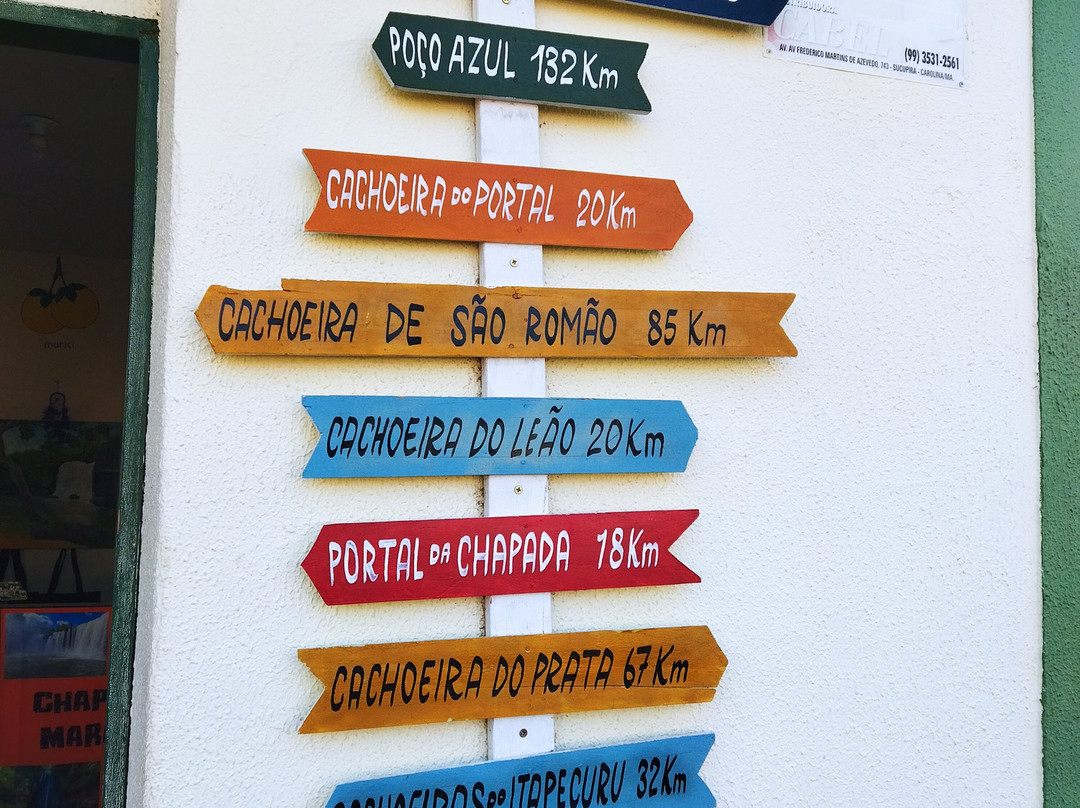 CABEL
(99) 3531-2561
AV. AV FREDERICO MARTINS DE AZEVEDO, 743 - SUCUPIRA - CAROLINA/MA.
POÇO AZUL 132 Km
CACHOEIRA DO PORTAL 20Km
CACHOEIRA DE SÃO ROMÃO 85 Km
CACHOEIRA DO LEÃO 20Km
PORTAL DA CHAPADA 18Km
CACHOEIRA DO PRATA 67 Km
CACHOEIRAS DO ITAPECURU 32Km
murici
CHAP
MAR